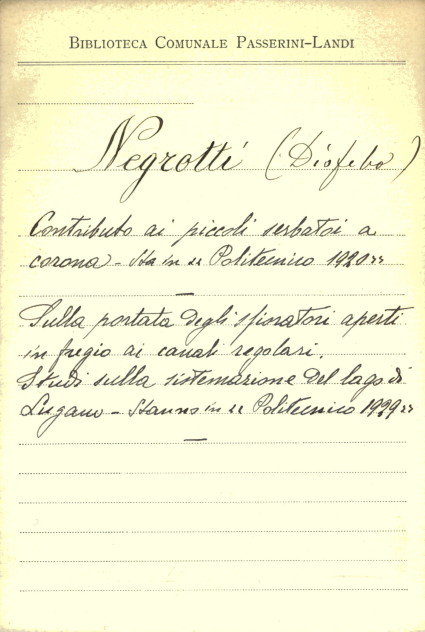 BIBLIOTECA COMUNALE PASSERINI-LANDI
Negrotti (Diofebo)
Contributo ai piccoli serbatoi a
corona - Sta in « Politecnico 1920 »
Sulla portata degli sfioratori aperti
in fregio ai canali regolari.
Studi sulla sistemazione del lago di
Lugano - Stanno in « Politecnico 1929 »